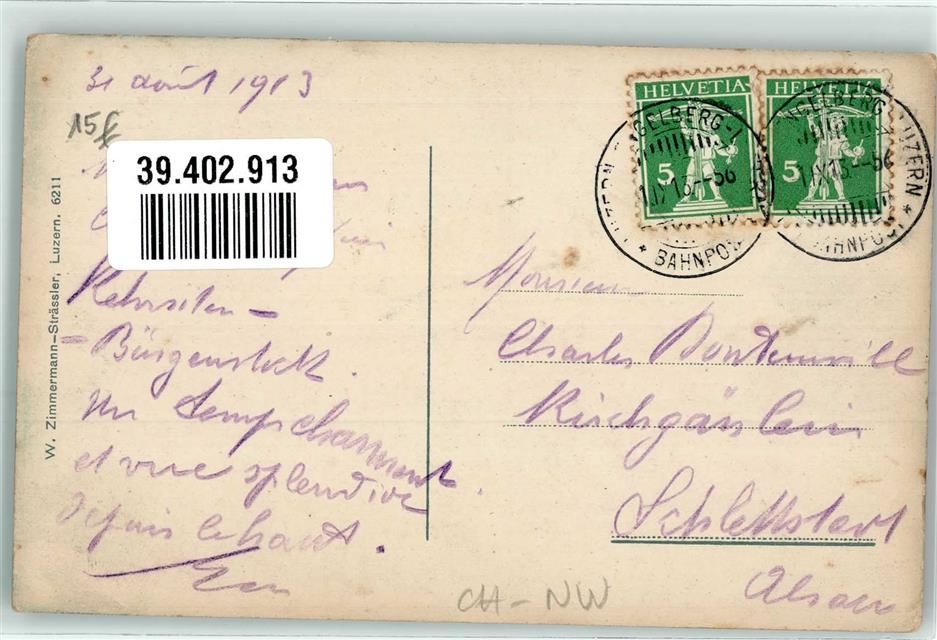 31 août 1913
15£
39.402.913
Kehrsiten -
- Bürgenstock.
un temps charment
et vue splendide
depuis le haut.
W. Zimmermann-Strässler, Luzern. 6211
HELVETIA
5
HELVETIA
5
ENGELBERG-LUZERN
* BAHNPOST
ENGELBERG-LUZERN *
BAHNPOST
Monsieur
Charles
Kirchgässlein
Schlettstadt
Alsace
CH - NW